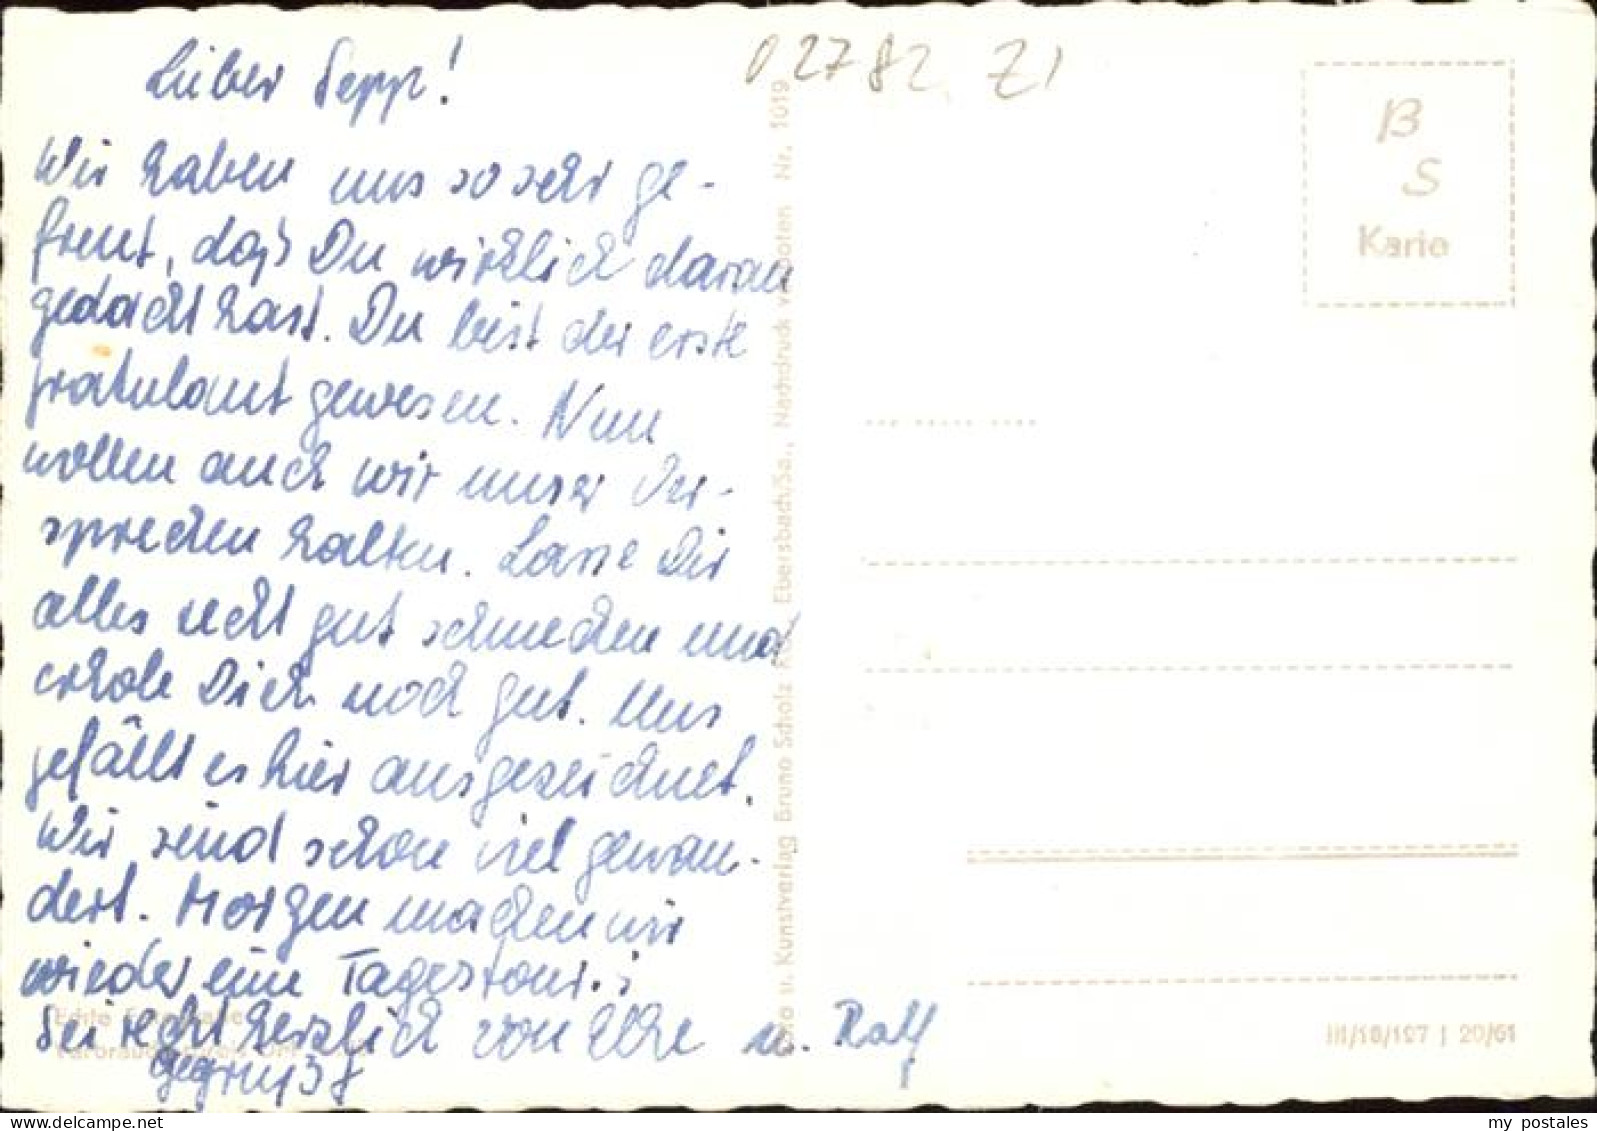 Lieber Sepp!
Wir haben uns so sehr ge-
freut, daß Du wirklich daran
gedacht hast. Du bist der erste
Gratulant gewesen. Nun
wollen auch wir unser Ver-
sprechen halten. Lasse Dir
alles recht gut schmecken und
erhole Dich noch gut. Uns
gefällt es hier ausgezeichnet.
Wir sind schon viel gewan-
dert. Morgen machen wir
wieder eine Tagestour.
Sei recht herzlich von Elke u. Ralf
gegrüßt
02782 Z1
Foto u. Kunstverlag Bruno Scholz KG, Ebersbach/Sa., Nachdruck verboten Nr. 1019
B
S
Karte
III/18/197 | 20/61
my postales